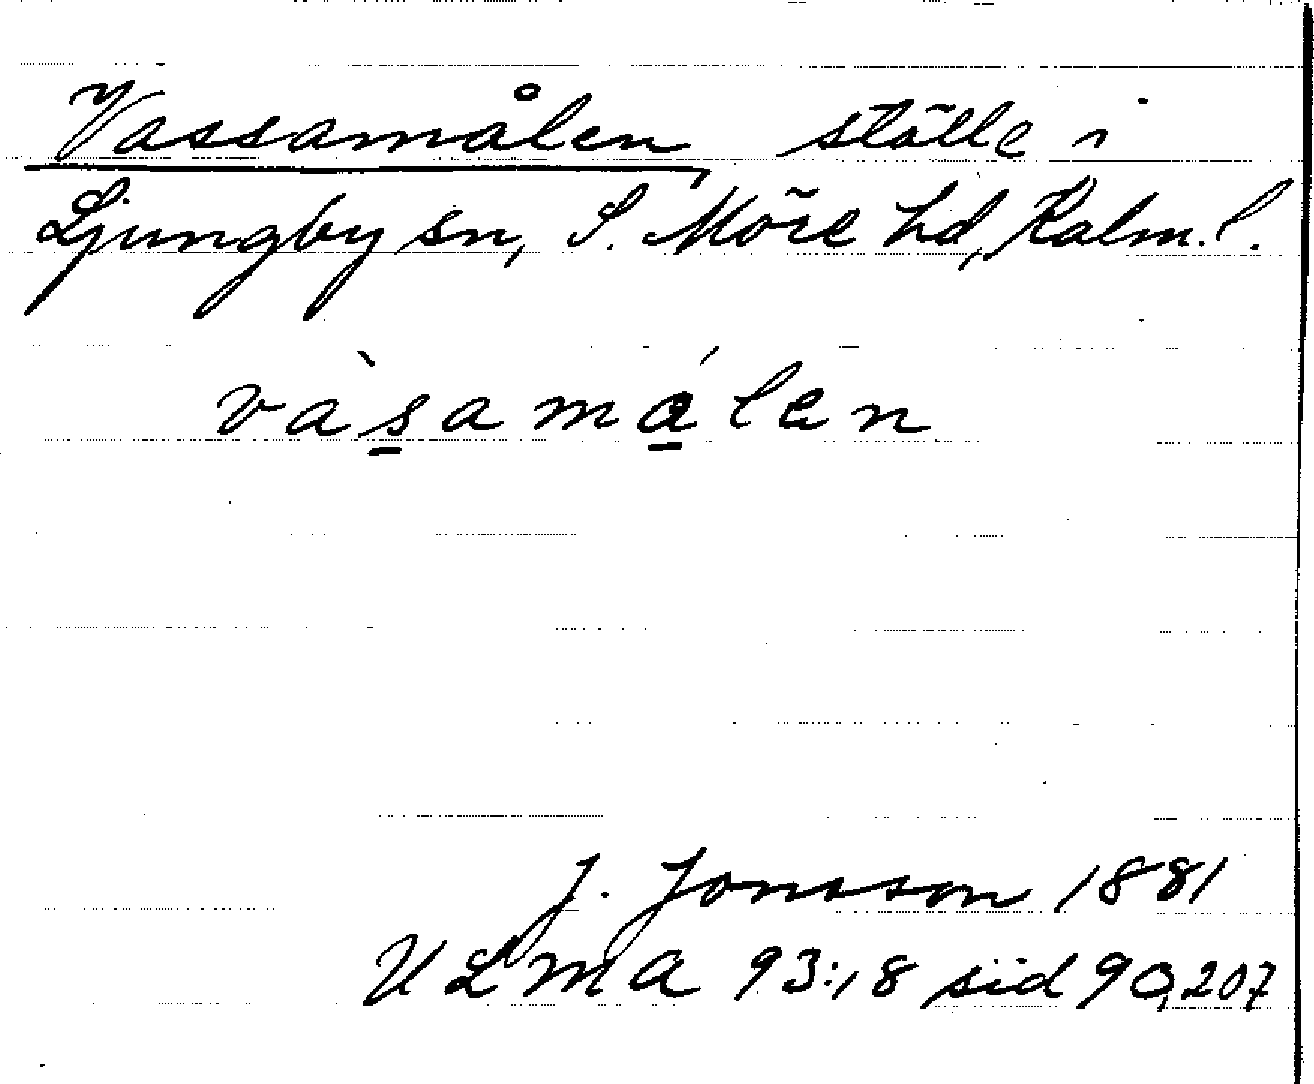 Vassamålen, ställe i
Ljungby sn, S. Möre hd, Kalm. l.
vàs̠amá̠len
J. Jonsson 1881
ULMA 93:18 sid 90, 207